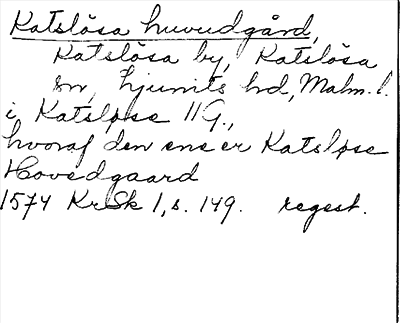 Katslösa huvudgård,
Katslösa by, Katslösa
sn, Ljunits hd, Malm. l.
i Katsløse 11 G.,
hvoraf den ene er Katsløse
Hovedgaard
1574 KrSk 1, s. 149. regest.